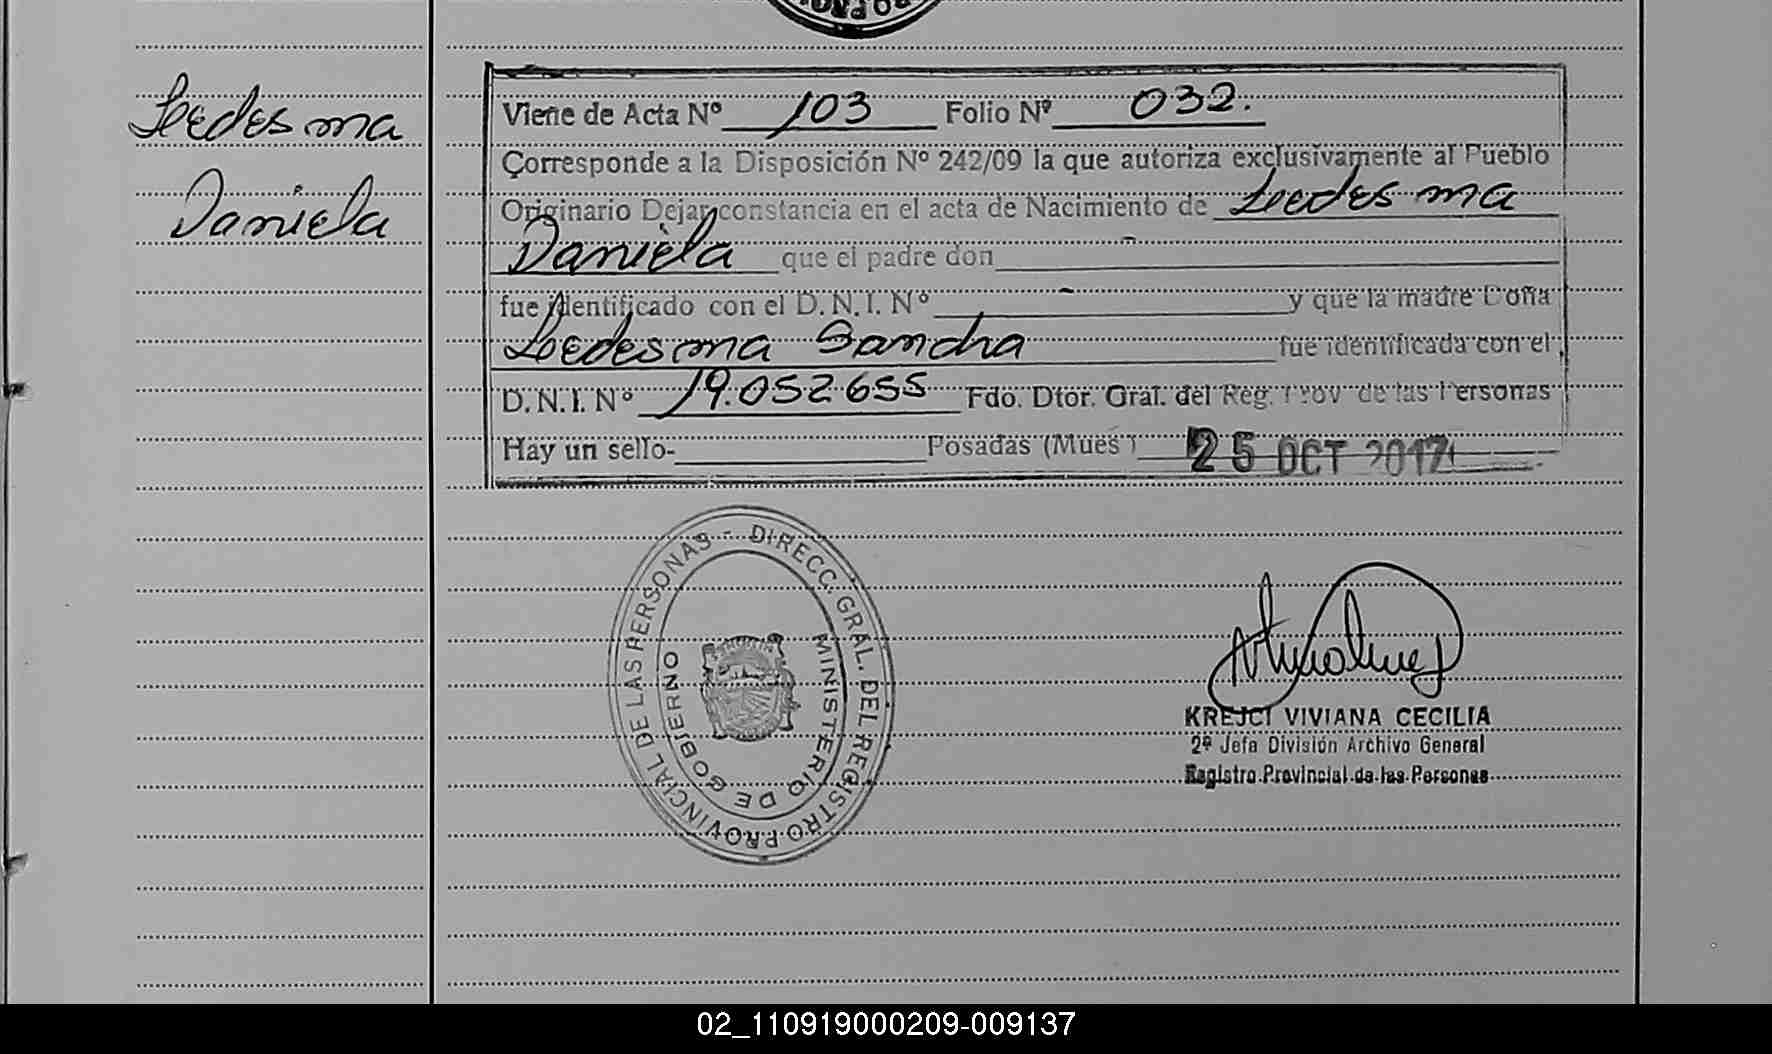 Ledesma
Daniela
Viene de Acta Nº 103 Folio Nº 032.
Corresponde a la Disposición Nº 242/09 la que autoriza exclusivamente al Pueblo
Originario Dejar constancia en el acta de Nacimiento de Ledesma
Daniela que el padre don -
fue identificado con el D.N.I. Nº - y que la madre Doña
Ledesma Sancha fue identificada con el
D.N.I. Nº 19.052655 Fdo. Dtor. Gral. del Reg. Prov de las Personas
Hay un sello- Posadas (Mnes) 25 OCT 2017
DIRECC. GRAL. DEL REGISTRO PROVINCIAL DE LAS PERSONAS -
MINISTERIO DE GOBIERNO
KREJCI VIVIANA CECILIA
2º Jefe División Archivo General
Registro Provincial de las Personas
02_110919000209-009137